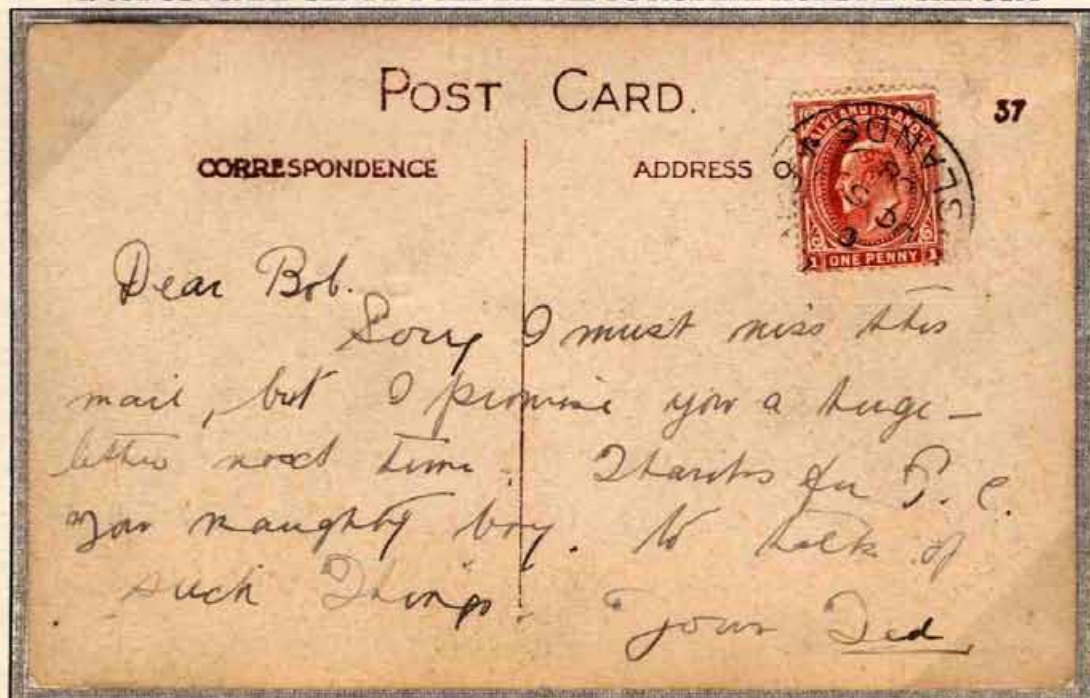 POST CARD.
37
CORRESPONDENCE
ADDRESS
FALKLAND ISLANDS
ISLANDS
1 ONE PENNY 1
Dear Bob.
Sorry I must miss this
mail, but I promise you a huge –
letter next time. Thanks for P.C.
You naughty boy. to talk of
such Things. Yours Ted